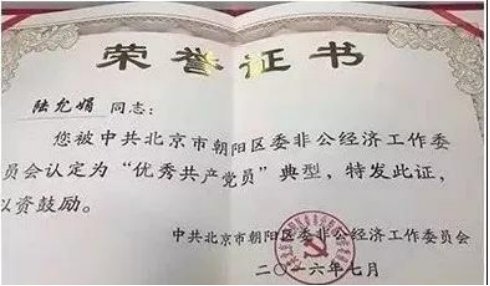 荣誉证书
陆允娟 同志：
您被中共北京市朝阳区委非公经济工作委
员会认定为“优秀共产党员”典型，特发此证，
以资鼓励。
中共北京市朝阳区委非公经济工作委员会
二〇一六年七月